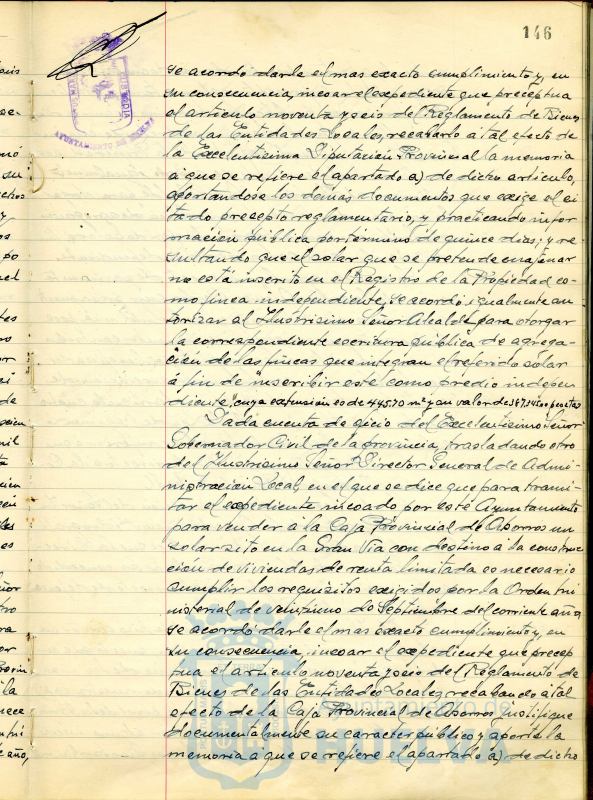 146
AYUNTAMIENTO DE HUELVA
se acordó darle el mas exacto cumplimiento y, en
su consecuencia, incoar el expediente que preceptua
el articulo noventa y seis del Reglamento de Bienes
de las Entidades Locales, recabarlo á tal efecto de
la Excelentisima Diputación Provincial la memoria
á que se refiere el apartado a) de dicho articulo,
aportandose los demás documentos que exige el ci
tado precepto reglamentario, y practicando infor
mación pública por término de quince dias; y re
sultando que el solar que se pretende enajenar
no está inscrito en el Registro de la Propiedad co-
mo finca independiente, se acordó igualmente au
torizar al Ilustrisimo Señor Alcalde para otorgar
la correspondiente escritura pública de agrega-
ción de las fincas que integran el referido solar
á fin de inscribir este como predio indepen
diente, cuya extensión es de 445.70 m² y un valor de pesetas
Dada cuenta de oficio del Excelentisimo Señor
Gobernador Civil de la provincia, trasladando otro
del Ilustrisimo Señor Director General de Admi-
nistración Local, en el que se dice que para trami-
tar el expediente incoado por este Ayuntamiento
para vender á la Caja Provincial de Ahorros un
solar sito en la Gran Via con destino á la construc
ción de viviendas de renta limitada es necesario
cumplir los requisitos exigidos por la Orden mi
nisterial de veintiuno de Septiembre del corriente año,
se acordó darle el mas exacto cumplimiento y, en
su consecuencia, incoar el expediente que precep
tua el articulo noventa y seis del Reglamento de
Bienes de las Entidades Locales, recabando á tal
efecto de la Caja Provincial de Ahorros justifique
documentalmente su caracter público y aporte la
memoria a que se refiere el apartado a) de dicho
Ayuntamiento de
HUELVA